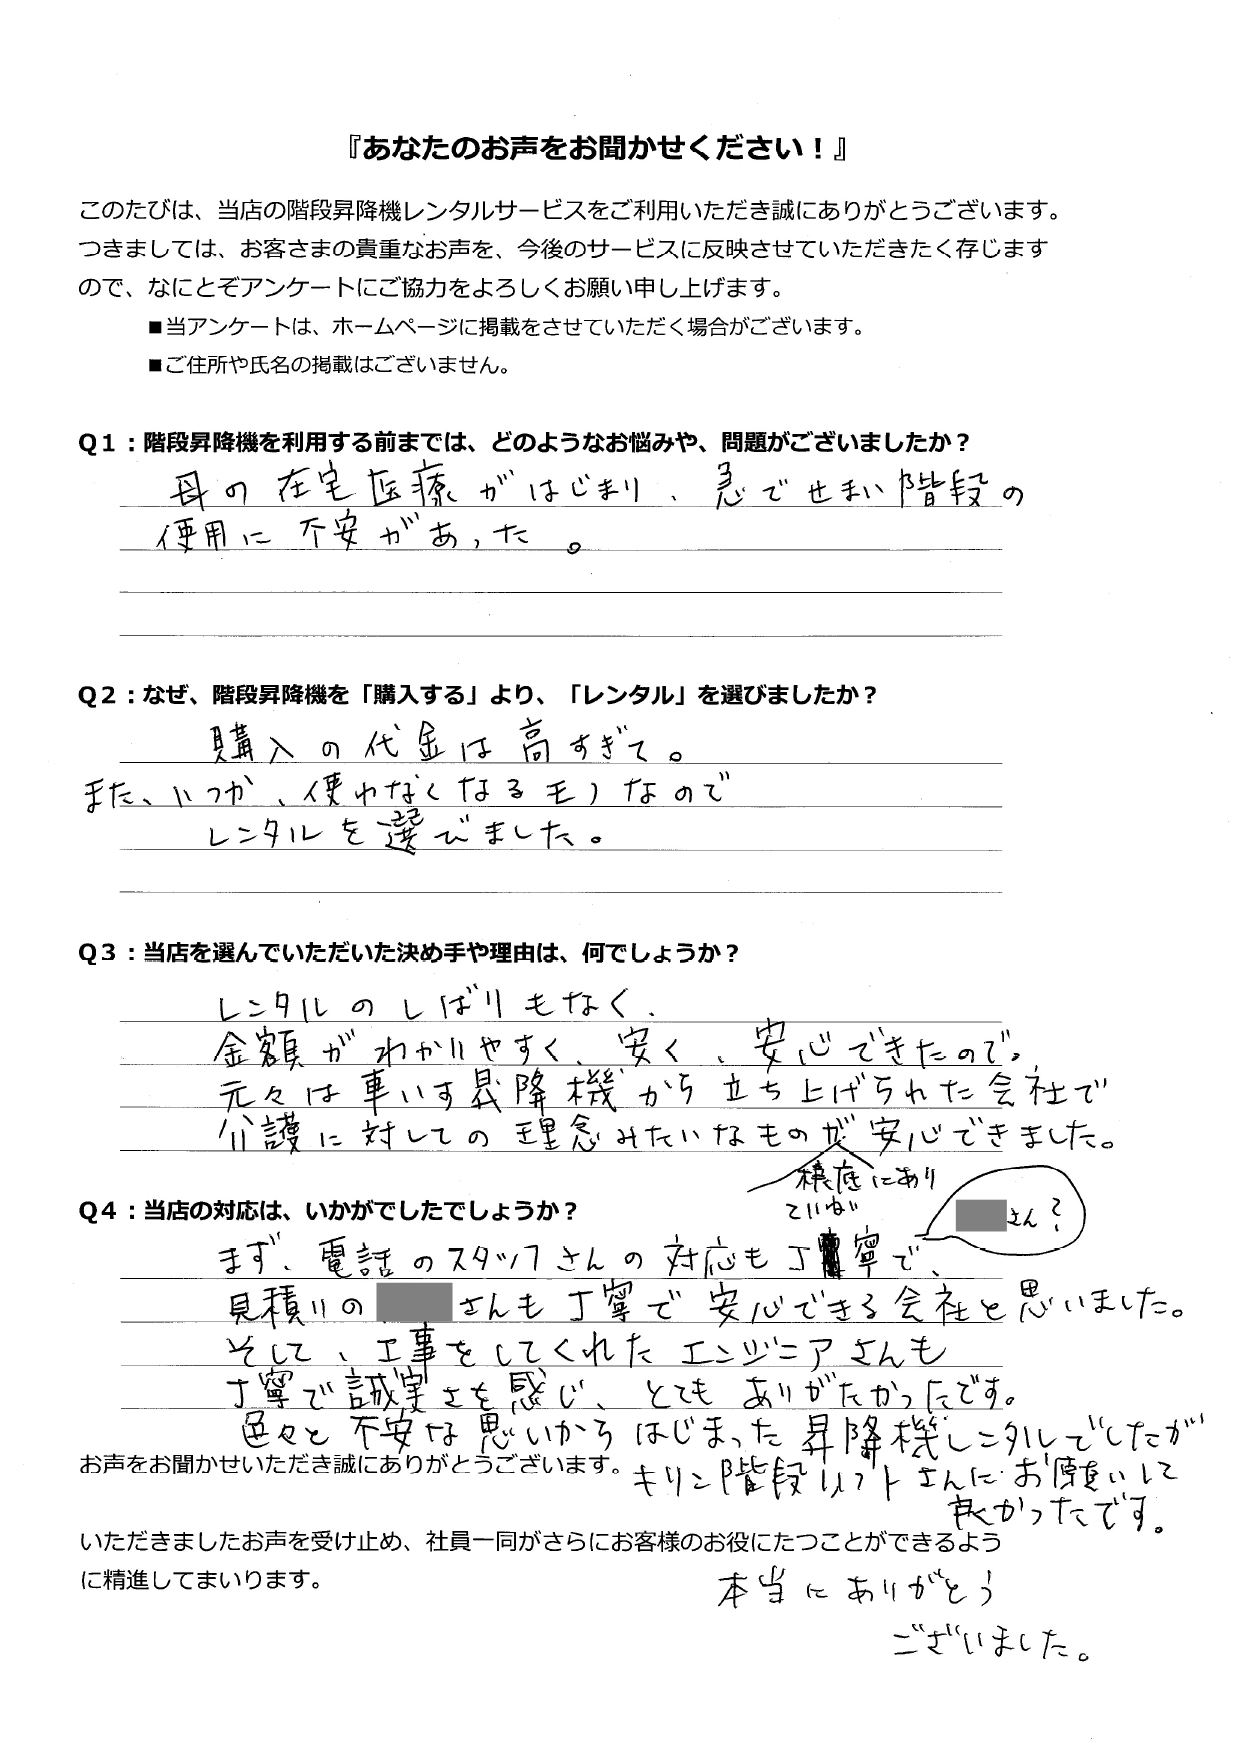 『あなたのお声をお聞かせください！』
このたびは、当店の階段昇降機レンタルサービスをご利用いただき誠にありがとうございます。
つきましては、お客さまの貴重なお声を、今後のサービスに反映させていただきたく存じます
ので、なにとぞアンケートにご協力をよろしくお願い申し上げます。
■当アンケートは、ホームページに掲載をさせていただく場合がございます。
■ご住所や氏名の掲載はございません。
Q1：階段昇降機を利用する前までは、どのようなお悩みや、問題がございましたか？
母の在宅医療がはじまり、急でせまい階段の
使用に不安があった。
Q2：なぜ、階段昇降機を「購入する」より、「レンタル」を選びましたか？
購入の代金は高すぎて。
また、いつか、使わなくなるモノなので
レンタルを選びました。
Q3：当店を選んでいただいた決め手や理由は、何でしょうか？
レンタルのしばりもなく、
金額がわかりやすく、安く、安心できたので。
元々は車いす昇降機から立ち上げられた会社で
介護に対しての理念みたいなものが安心できました。
根底にあり
Q4：当店の対応は、いかがでしたでしょうか？
ていねい
さん？
まず、電話のスタッフさんの対応も丁寧で、
見積りの さんも丁寧で安心できる会社と思いました。
そして、工事をしてくれたエンジニアさんも
丁寧で誠実さを感じ、とてもありがたかったです。
色々と不安な思いからはじまった昇降機レンタルでしたが
お声をお聞かせいただき誠にありがとうございます。
キリン階段リフトさんにお願いして
良かったです。
いただきましたお声を受け止め、社員一同がさらにお客様のお役にたつことができるよう
に精進してまいります。
本当にありがとう
ございました。